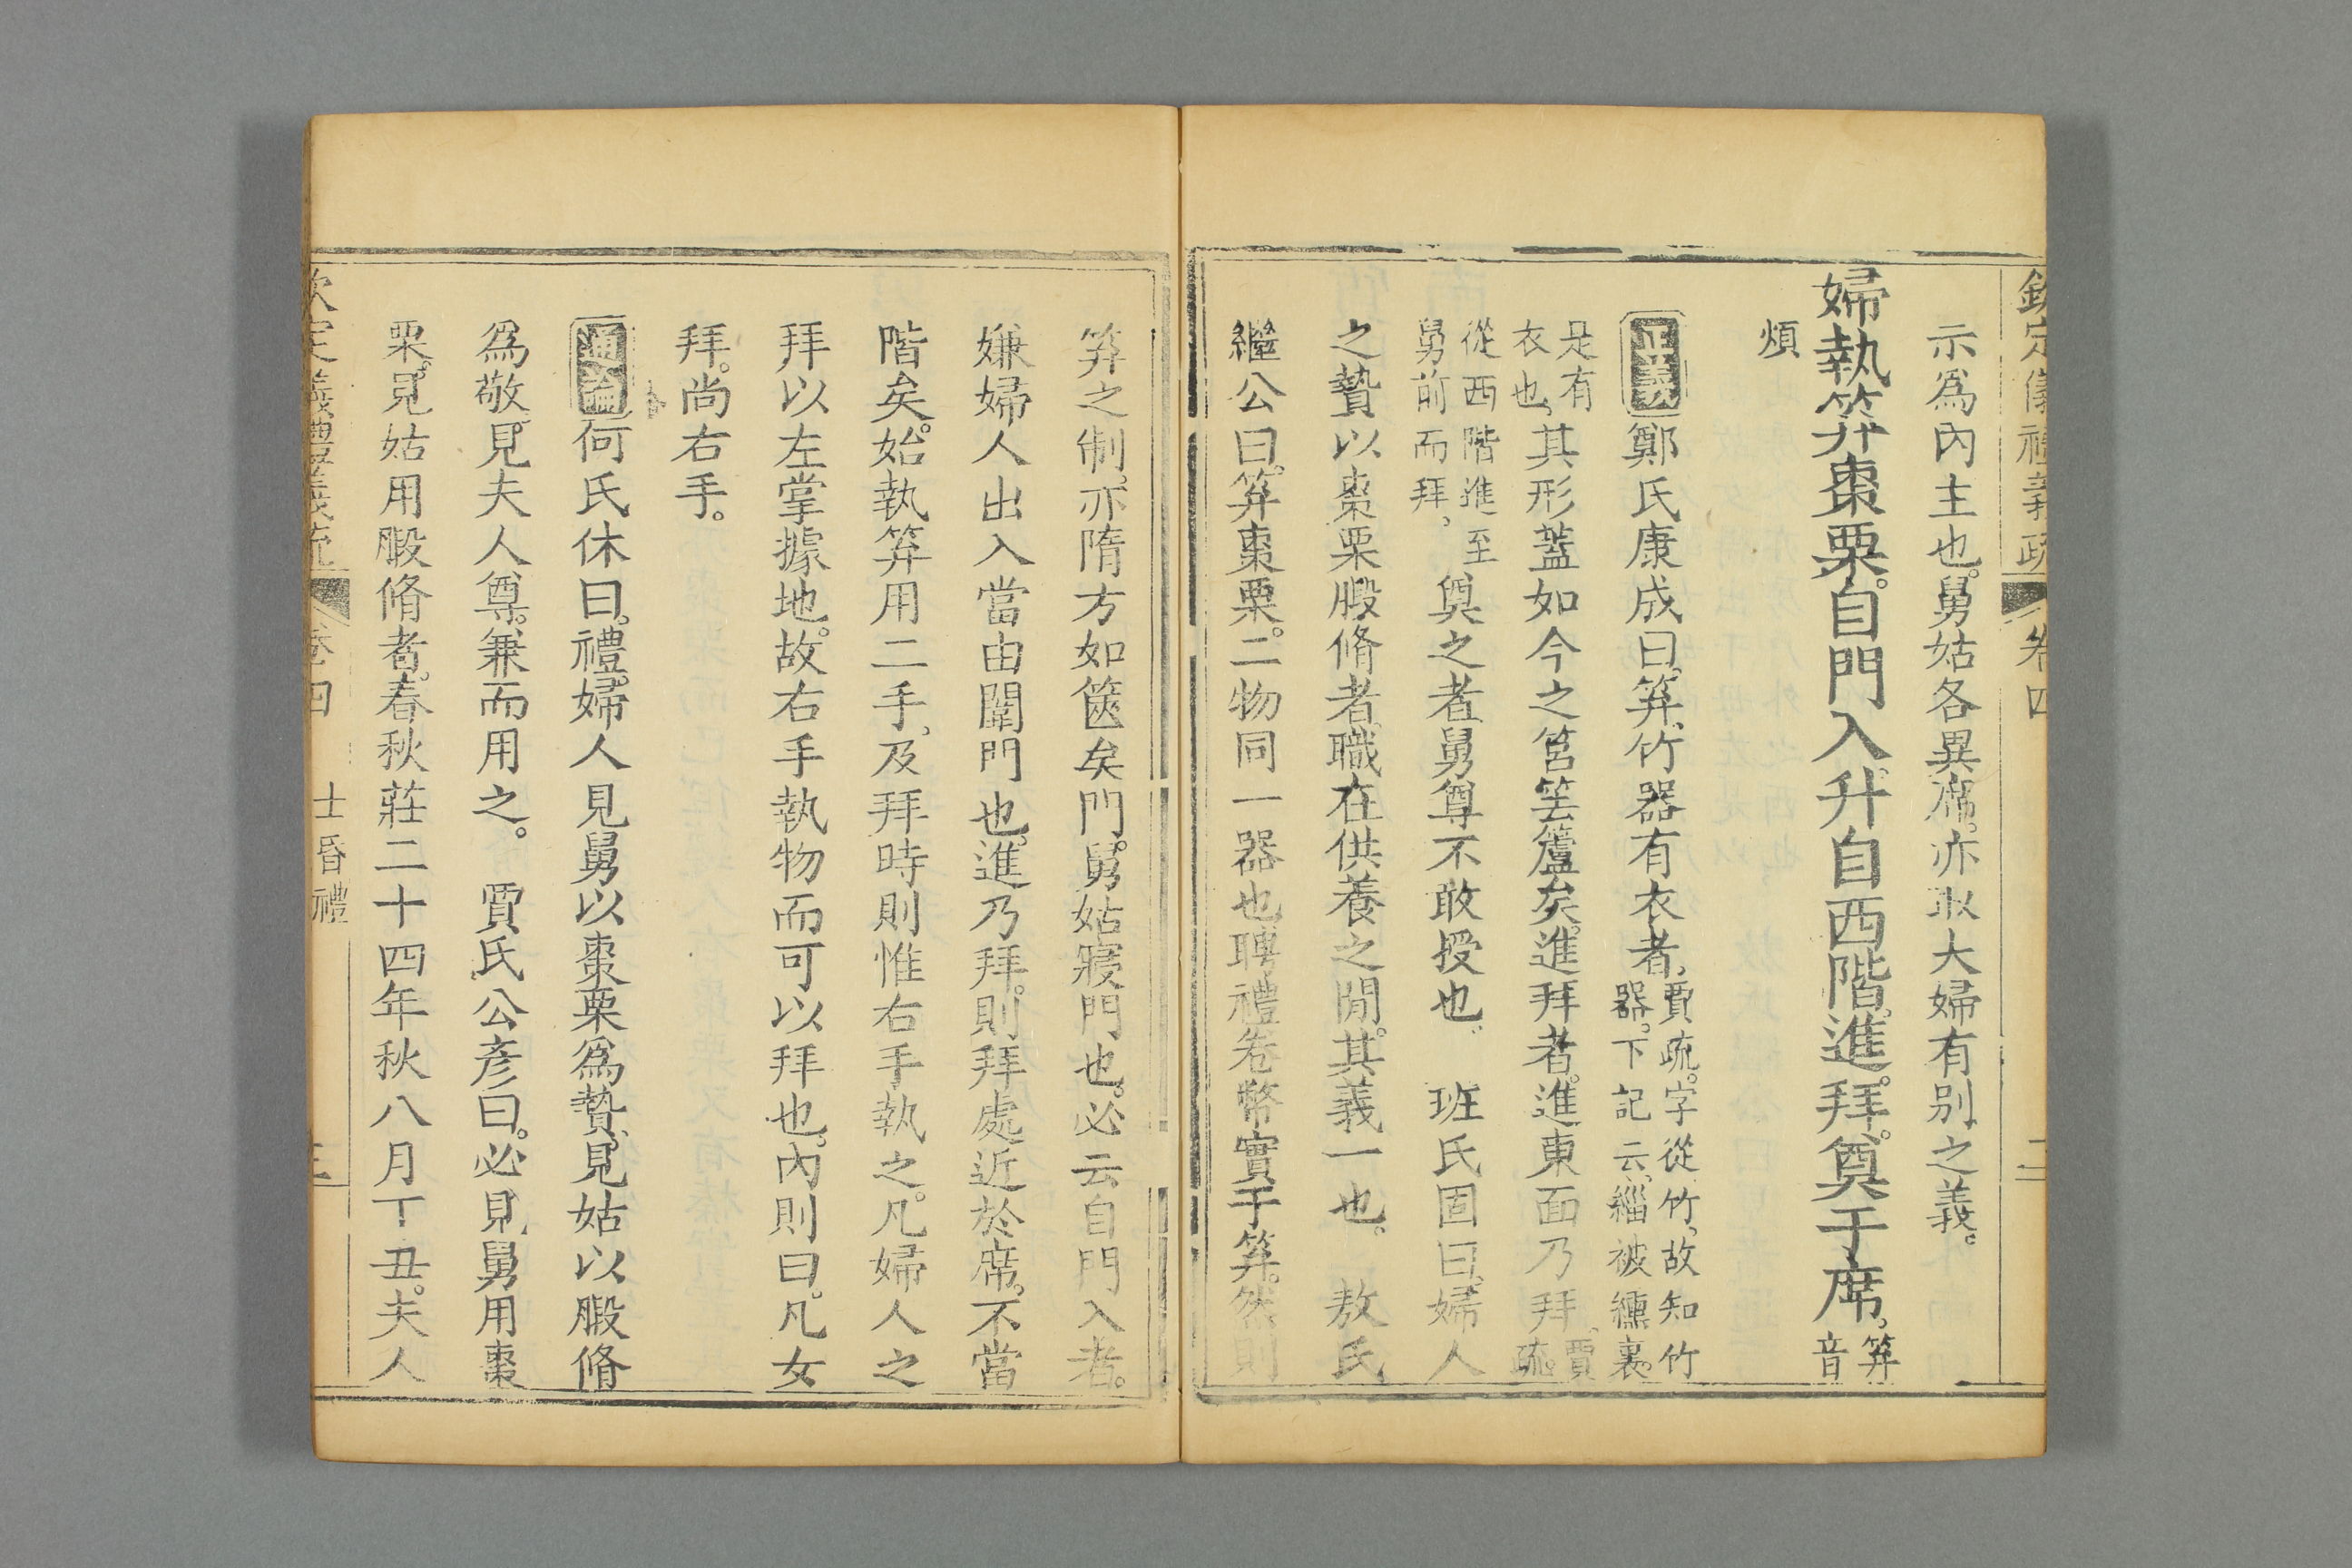 欽定儀禮義疏 卷四 二
示爲內主也。舅姑各異席。亦取大婦有別之義。
婦執笲棗栗。自門入。升自西階。進。拜。奠于席。笲音
煩
正義鄭氏康成曰。笲、竹器有衣者、賈疏。字從竹。故知竹器。下記云、緇被纁裏。
是有衣也、其形蓋如今之筥䇬籚矣。進拜者。進東面乃拜、賈疏。
從西階進至舅前而拜、奠之者。舅尊不敢授也。 班氏固曰。婦人
之贄以棗栗腶脩者、職在供養之閒。其義一也。 敖氏
繼公曰。笲棗栗。二物同一器也。聘禮卷幣實于笲。然則
笲之制。亦隋方如篋矣。門。舅姑寢門也。必云自門入者。
嫌婦人出入當由闈門也。進乃拜。則拜處近於席。不當
階矣。始執笲用二手、及拜時則惟右手執之。凡婦人之
拜以左掌據地。故右手執物而可以拜也。內則曰。凡女
拜。尚右手。
通論何氏休曰。禮。婦人見舅以棗栗爲贄、見姑以腶脩
爲敬。見夫人尊。兼而用之。 賈氏公彥曰。必見舅用棗
栗。見姑用腶脩者。春秋莊二十四年秋八月丁丑。夫人
欽定儀禮義疏 卷四 士昏禮 三